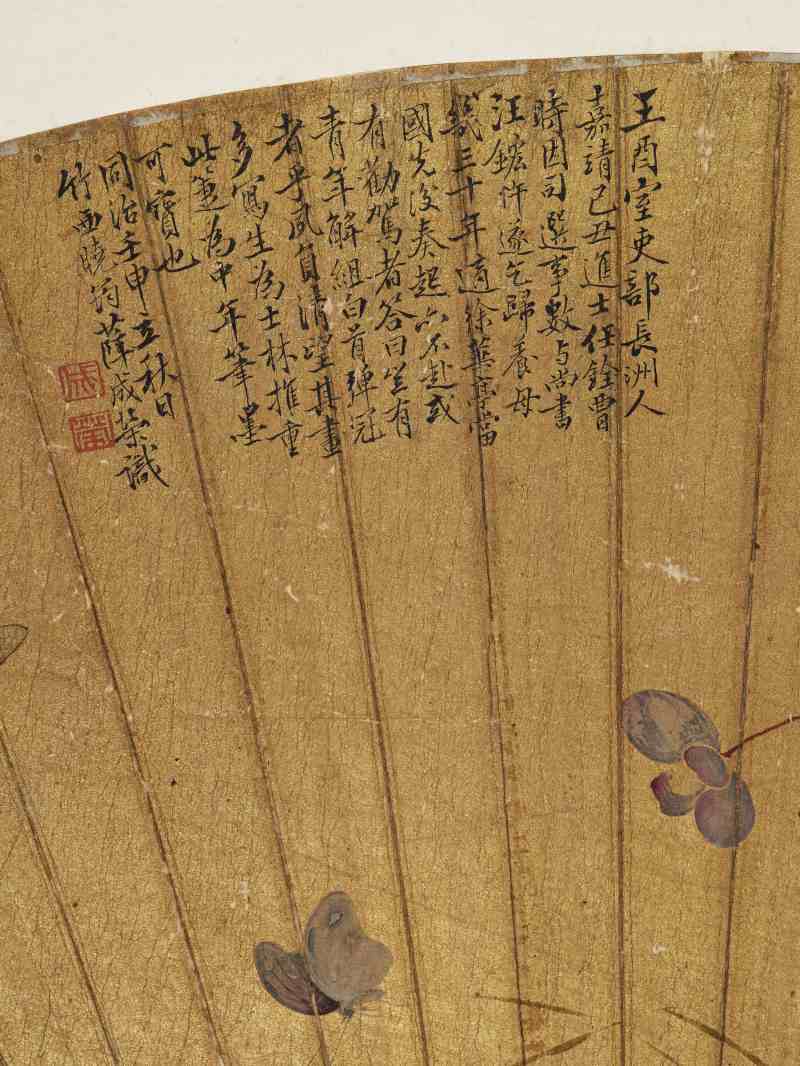 王酉室吏部長洲人
嘉靖己丑進士任銓曹
時因司選事數与尚書
汪鋐忤遂乞歸養母
幾三十年適徐華亭當
國先後奏起六不赴或
有勸駕者答曰豈有
青年解組白首彈冠
者乎夙負清望其畫
多寫生為士林推重
此箑為中年筆墨
可寶也
同治壬申立秋日
竹西曉翁薛成榮識
成
榮